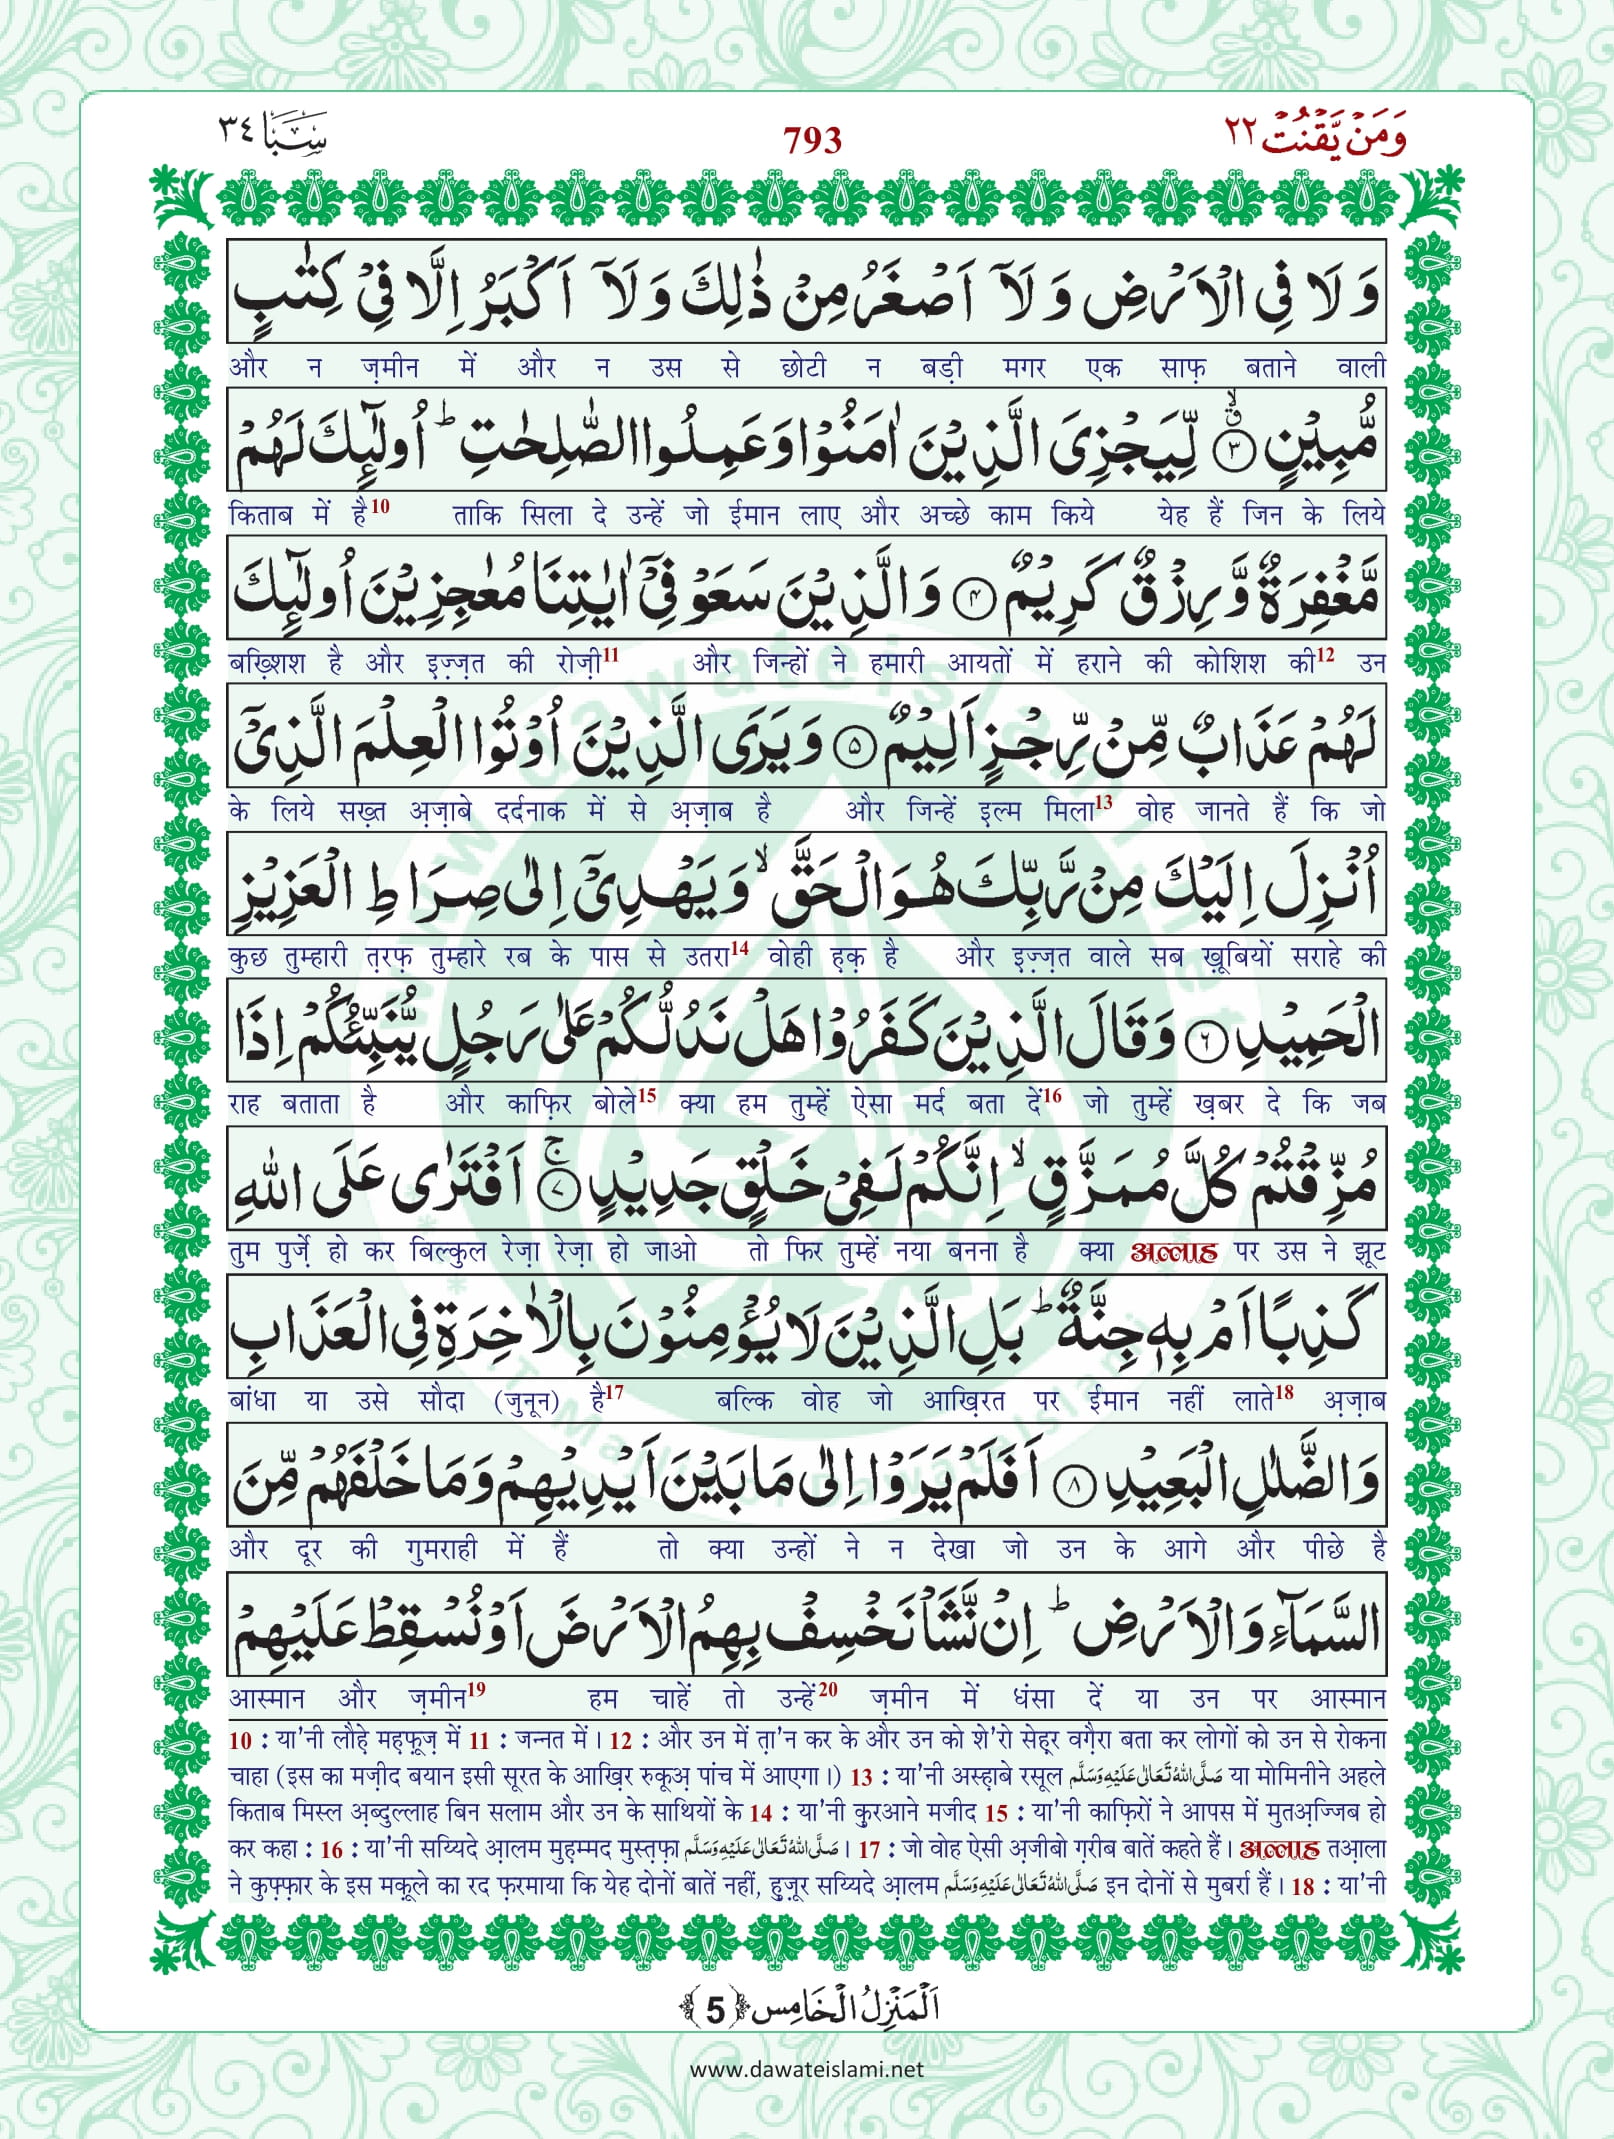 وَمَنۡ يَّقۡنُتۡ ٢٢
793
سَبَا ٣٤
وَ لَا فِى الۡاَرۡضِ وَ لَاۤ اَصۡغَرُ مِنۡ ذٰلِكَ وَ لَاۤ اَكۡبَرُ اِلَّا فِىۡ كِتٰبٍ
और न ज़मीन में और न उस से छोटी न बड़ी मगर एक साफ़ बताने वाली
مُّبِيۡنٍ ۙ‏ۗ ﴿۳﴾ لِّيَجۡزِىَ الَّذِيۡنَ اٰمَنُوۡا وَ عَمِلُوا الصّٰلِحٰتِ ؕ اُولٰٓئِكَ لَهُمۡ
किताब में है10 ताकि सिला दे उन्हें जो ईमान लाए और अच्छे काम किये येह हैं जिन के लिये
مَّغۡفِرَةٌ وَّ رِزۡقٌ كَرِيۡمٌ ﴿۴﴾ وَ الَّذِيۡنَ سَعَوۡ فِىۡۤ اٰيٰتِنَا مُعٰجِزِيۡنَ اُولٰٓئِكَ
बख़्शिश है और इज़्ज़त की रोज़ी11 और जिन्हों ने हमारी आयतों में हराने की कोशिश की12 उन
لَهُمۡ عَذَابٌ مِّنۡ رِّجۡزٍ اَلِيۡمٌ ﴿۵﴾ وَ يَرَى الَّذِيۡنَ اُوۡتُوا الۡعِلۡمَ الَّذِىۡۤ
के लिये सख़्त अ़ज़ाबे दर्दनाक में से अ़ज़ाब है और जिन्हें इ़ल्म मिला13 वोह जानते हैं कि जो
اُنۡزِلَ اِلَيۡكَ مِنۡ رَّبِّكَ هُوَ الۡحَقَّ ۙ وَ يَهۡدِىۡۤ اِلٰى صِرَاطِ الۡعَزِيۡزِ
कुछ तुम्हारी त़रफ़ तुम्हारे रब के पास से उतरा14 वोही ह़क़ है और इ़ज़्ज़त वाले सब ख़ूबियों सराहे की
الۡحَمِيۡدِ ﴿۶﴾ وَ قَالَ الَّذِيۡنَ كَفَرُوۡا هَلۡ نَدُلُّكُمۡ عَلٰى رَجُلٍ يُّنَبِّئُكُمۡ اِذَا
राह बताता है और काफ़िर बोले15 क्या हम तुम्हें ऐसा मर्द बता दें16 जो तुम्हें ख़बर दे कि जब
مُزِّقۡتُمۡ كُلَّ مُمَزَّقٍ ۙ اِنَّكُمۡ لَفِىۡ خَلۡقٍ جَدِيۡدٍ ۚ ﴿۷﴾ اَفۡتَرٰى عَلَى اللّٰهِ
तुम पुर्ज़े हो कर बिल्कुल रेज़ा रेज़ा हो जाओ तो फिर तुम्हें नया बनना है क्या अल्लाह पर उस ने झूट
كَذِبًا اَمۡ بِهٖ جِنَّةٌ ؕ بَلِ الَّذِيۡنَ لَا يُؤۡمِنُوۡنَ بِالۡاٰخِرَةِ فِى الۡعَذَابِ
बांधा या उसे सौदा (जुनून) है17 बल्कि वोह जो आख़िरत पर ईमान नहीं लाते18 अ़ज़ाब
وَ الضَّلٰلِ الۡبَعِيۡدِ ﴿۸﴾ اَفَلَمۡ يَرَوۡا اِلٰى مَا بَيۡنَ اَيۡدِيۡهِمۡ وَ مَا خَلۡفَهُمۡ مِّنَ
और दूर की गुमराही में हैं तो क्या उन्हों ने न देखा जो उन के आगे और पीछे है
السَّمَآءِ وَ الۡاَرۡضِ ؕ اِنۡ نَّشَاۡ نَخۡسِفۡ بِهِمُ الۡاَرۡضَ اَوۡ نُسۡقِطۡ عَلَيۡهِمۡ
आस्मान और ज़मीन19 हम चाहें तो उन्हें20 ज़मीन में धंसा दें या उन पर आस्मान
10 : या'नी लौह़े मह़फ़ूज़ में 11 : जन्नत में। 12 : और उन में त़ा'न कर के और उन को शे'रो सेह़र वग़ैरा बता कर लोगों को उन से रोकना
चाहा (इस का मज़ीद बयान इसी सूरत के आख़िर रुकूअ़ पांच में आएगा।) 13 : या'नी अस्ह़ाबे रसूल صَلَّى اللهُ تَعَالٰى عَلَيْهِ وَسَلَّم या मोमिनीने अहले
किताब मिस्ल अ़ब्दुल्लाह बिन सलाम और उन के साथियों के 14 : या'नी क़ुरआने मजीद 15 : या'नी काफ़िरों ने आपस में मुतअ़ज्जिब हो
कर कहा : 16 : या'नी सय्यिदे आ़लम मुह़म्मद मुस्त़फ़ा صَلَّى اللهُ تَعَالٰى عَلَيْهِ وَسَلَّم। 17 : जो वोह ऐसी अ़जीबो ग़रीब बातें कहते हैं। अल्लाह तआ़ला
ने कुफ़्फ़ार के इस मक़ूले का रद फ़रमाया कि येह दोनों बातें नहीं, हु़ज़ूर सय्यिदे आ़लम صَلَّى اللهُ تَعَالٰى عَلَيْهِ وَسَلَّم इन दोनों से मुबर्रा हैं। 18 : या'नी
اَلۡمَنۡزِلُ الۡخَامِس ﴿5﴾
www.dawateislami.net